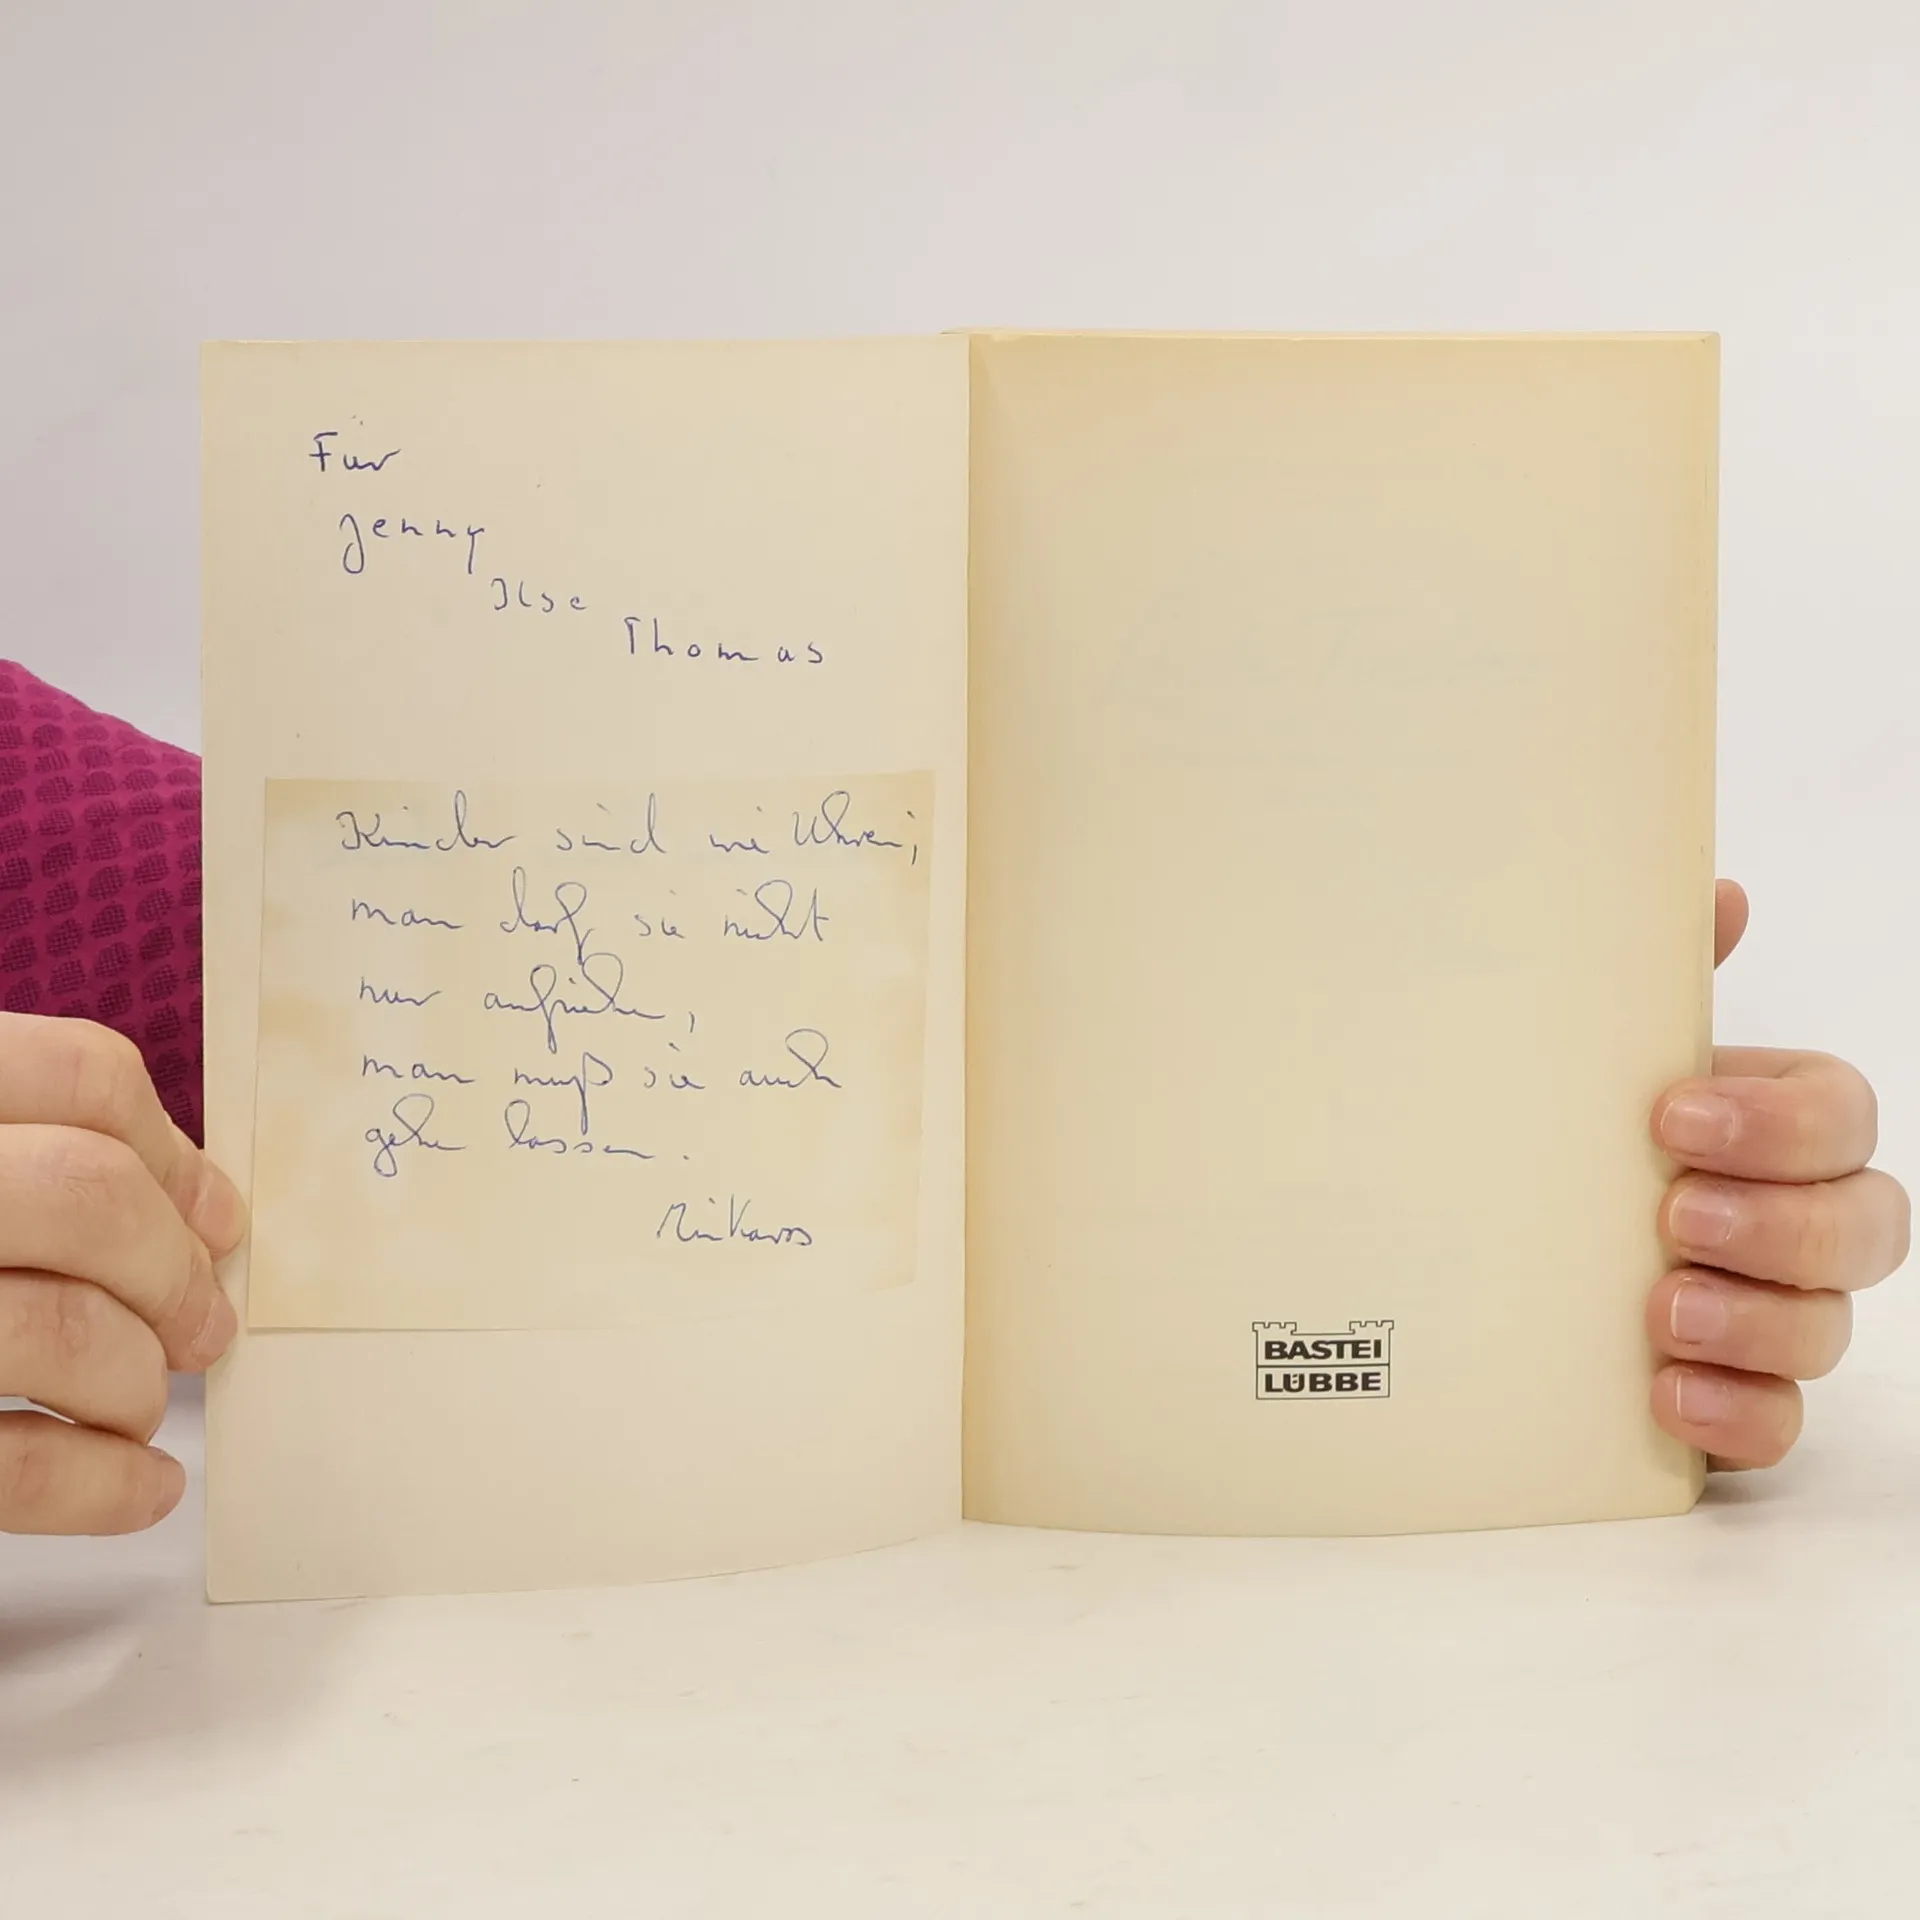 Für
Jenny
Ilse
Thomas
Kinder sind wie Uhren;
man darf sie nicht
nur aufziehen,
man muß sie auch
gehen lassen.
BASTEI
LÜBBE